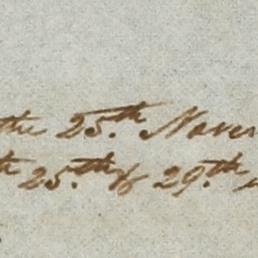 the 25.th Nover
th 25.th & 29.th